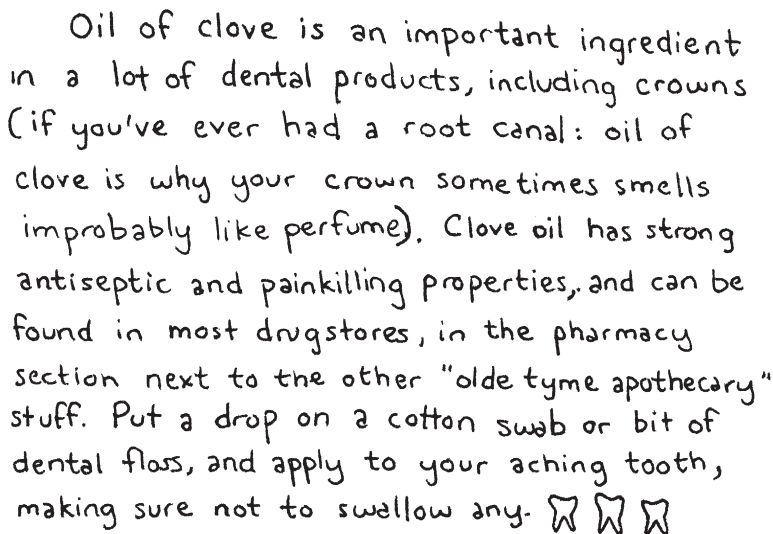 Oil of clove is an important ingredient
in a lot of dental products, including crowns
(if you've ever had a root canal: oil of
clove is why your crown sometimes smells
improbably like perfume). Clove oil has strong
antiseptic and painkilling properties, and can be
found in most drugstores, in the pharmacy
section next to the other "olde tyme apothecary"
stuff. Put a drop on a cotton swab or bit of
dental floss, and apply to your aching tooth,
making sure not to swallow any.